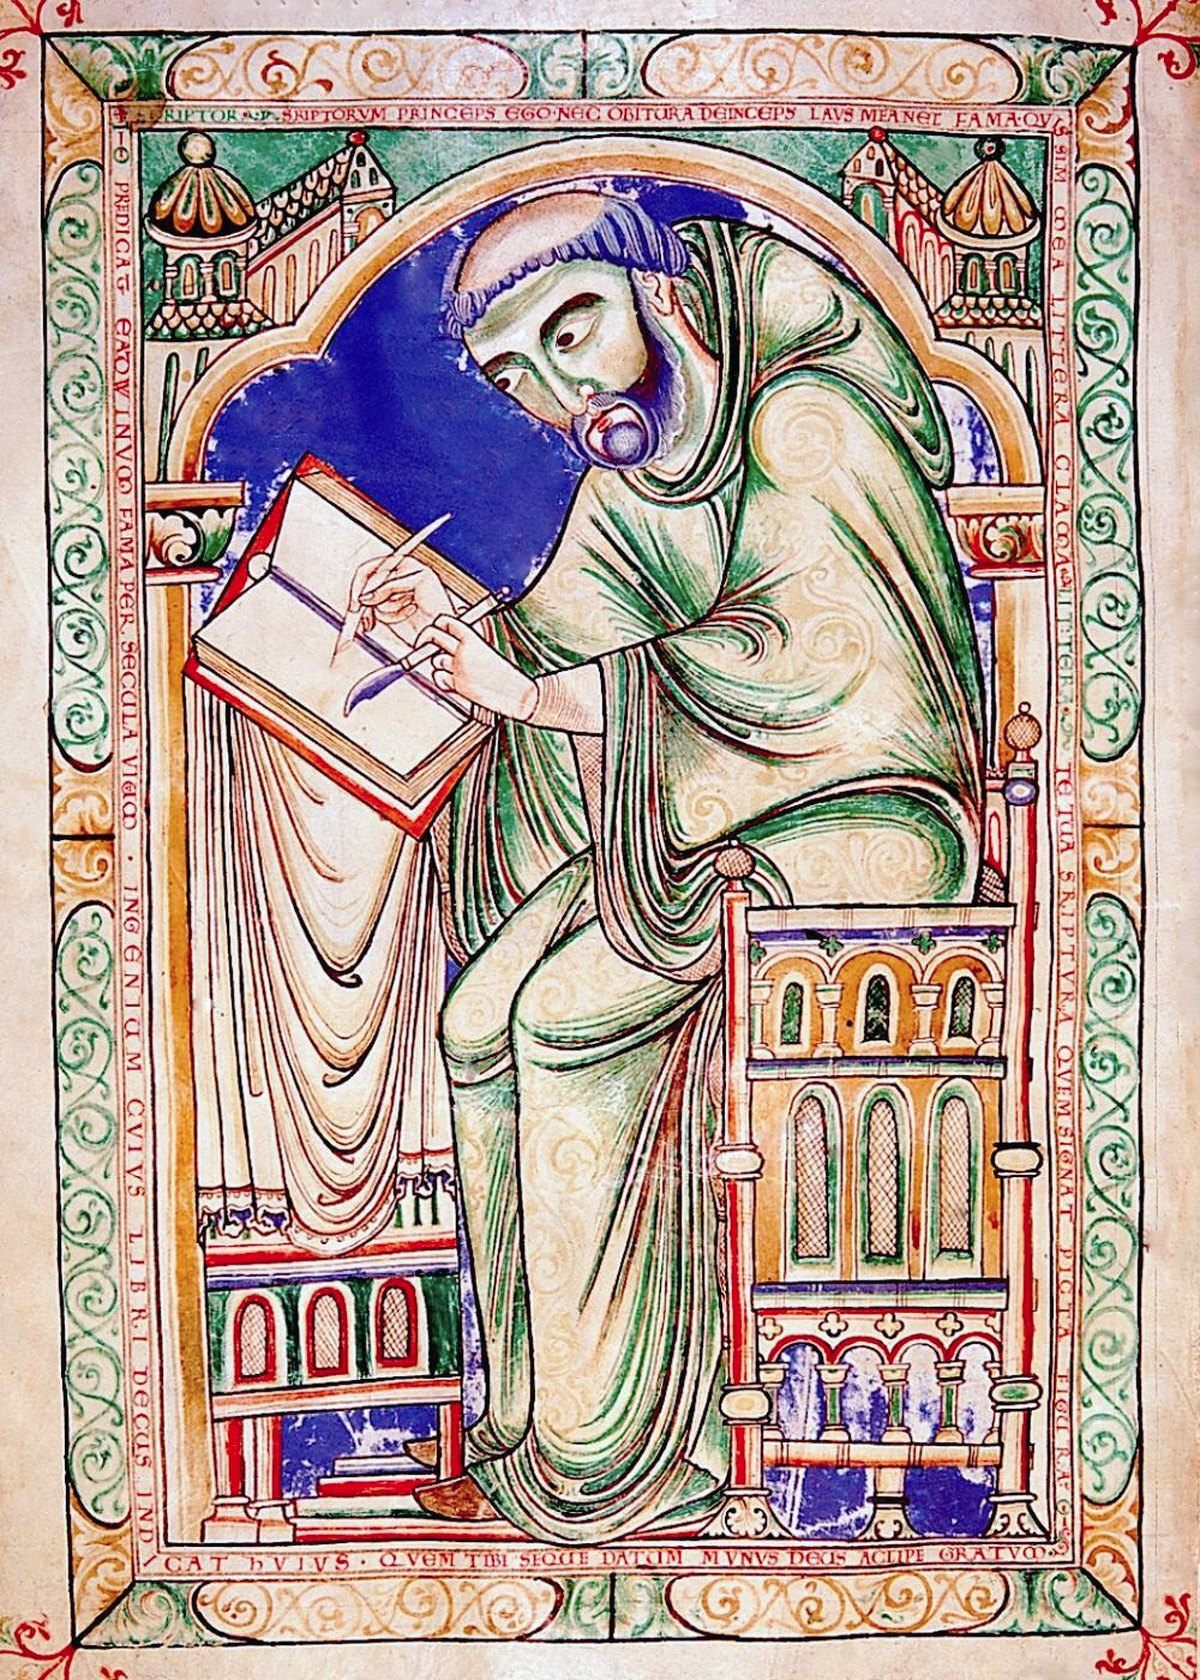 SCRIPTOR SRIPTORVM PRINCEPS EGO·NEC OBITURA DEINCEPS LAVS MEA NEC FAMA·QVIS
SIM MEA LITTERA CLAMA TE TUA SRIPTVRA QVEM SIGNAT PICTA FIGURA
PREDICAT EADWINVM FAMA PER SECULA VIVUM · INGENIUM CVIVS LIBRI DECUS IND
ICAT HVIVS · QVEM TIBI SEQUE DATUM MVNVS DEUS ACCIPE GRATVM